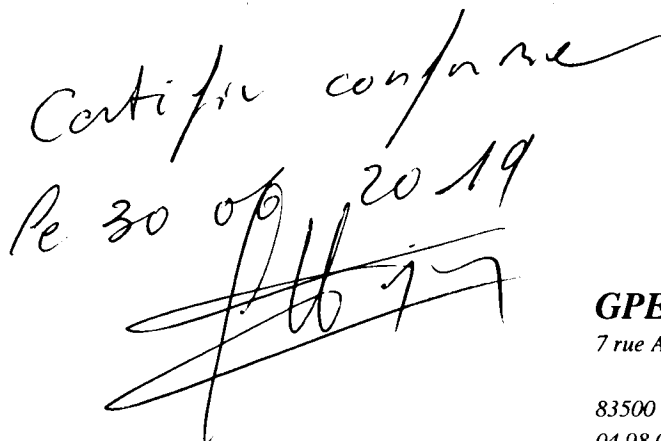 Certifié conforme
le 30 06 2019
GPE
7 rue A
83500
04 98